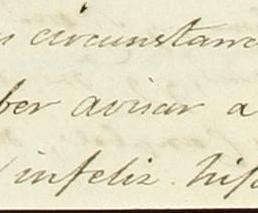 s circunstanc
ber avisar a
infeliz his